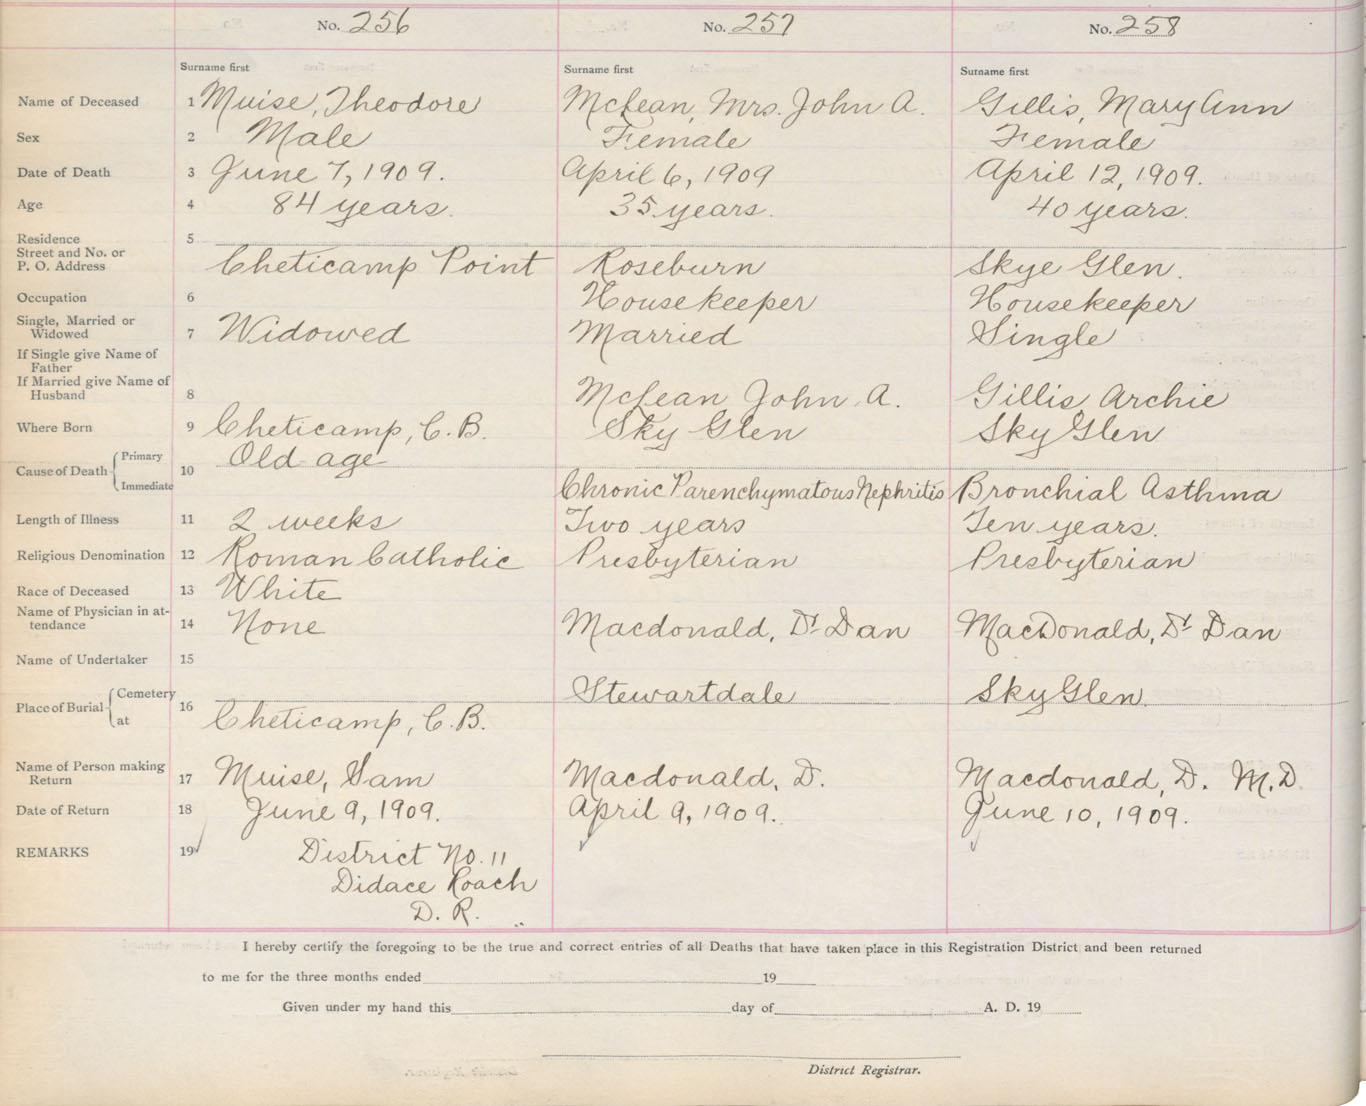 No. 256 No. 257 No. 258
Surname first Surname first Surname first
Name of Deceased 1 Muise, Theodore McLean, Mrs. John A. Gillis, Mary Ann
Sex 2 Male Female Female
Date of Death 3 June 7, 1909. April 6, 1909 April 12, 1909.
Age 4 84 years. 35 years. 40 years.
Residence 5
Street and No. or
P. O. Address Cheticamp Point Roseburn Skye Glen.
Occupation 6 Housekeeper Housekeeper
Single, Married or
Widowed 7 Widowed Married Single
If Single give Name of
Father
If Married give Name of
Husband 8 McLean John A. Gillis Archie
Where Born 9 Cheticamp, C.B. Sky Glen Sky Glen
Primary Old age
Cause of Death 10
Immediate Chronic Parenchymatous Nephritis Bronchial Asthma
Length of Illness 11 2 weeks Two years Ten years.
Religious Denomination 12 Roman Catholic Presbyterian Presbyterian
Race of Deceased 13 White
Name of Physician in at-
tendance 14 None Macdonald, Dr Dan MacDonald, Dr Dan
Name of Undertaker 15
Cemetery Stewartdale Sky Glen.
Place of Burial 16
at Cheticamp, C.B.
Name of Person making
Return 17 Muise, Sam Macdonald, D. Macdonald, D. M.D
Date of Return 18 June 9, 1909. April 9, 1909. June 10, 1909.
REMARKS 19 District No. 11
Didace Roach
D. R.
I hereby certify the foregoing to be the true and correct entries of all Deaths that have taken place in this Registration District and been returned
to me for the three months ended 19
Given under my hand this day of A. D. 19
District Registrar.